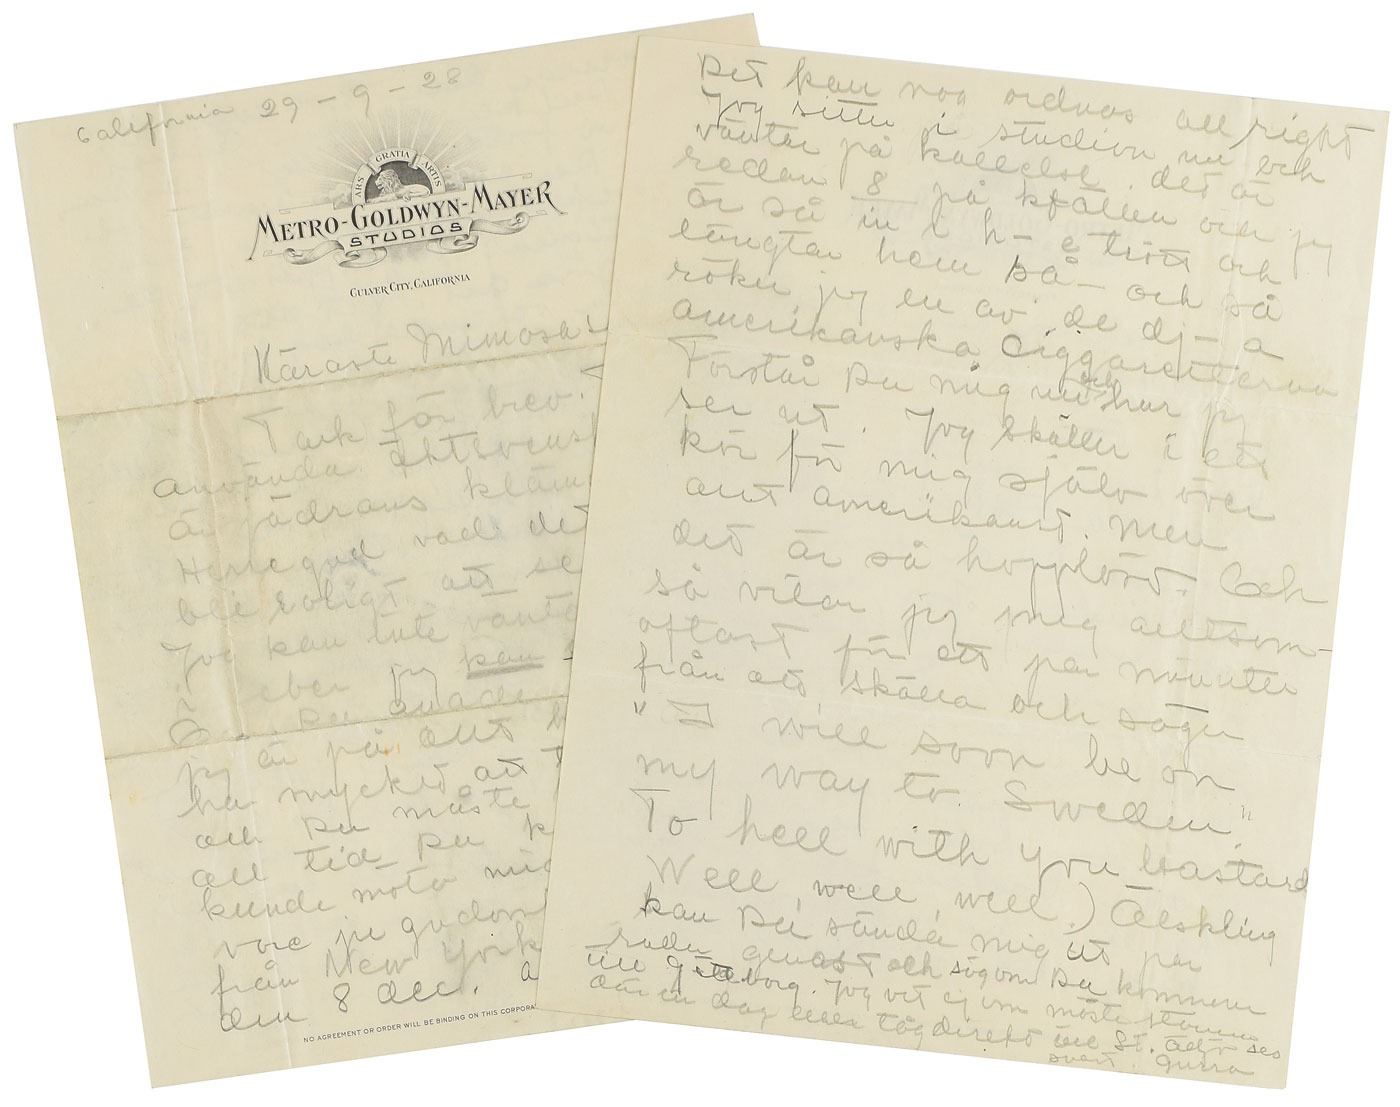 California 29-9-28
ARS GRATIA ARTIS
METRO-GOLDWYN-MAYER
STUDIOS
CULVER CITY, CALIFORNIA
Käraste Mimosa
Tack för brev.
använda äktsvensk
är jädrans kläm
Herregud vad det
bli roligt att se
Jag kan inte vänta
jag kan
Du
jag är på
ha mycket att
och Du måste
all tid Du k
kunde möta mig
vore ju gudom
från New York
den 8 dec. a
NO AGREEMENT OR ORDER WILL BE BINDING ON THIS CORPORA
Det kan nog ordnas all right
Jag sitter i studion nu och
väntar på kallelse. det är
redan 8 på kfällen och jag
är så in i h-e trött och
längtar hem så - och så
röker jag en av de dj-a
amerikanska Ciggaretterna
Förstår Du mig nu hur jag
och
ser ut. Jag skäller i ett
kör för mig själv över
allt amerikanst. Men
det är så hopplöst. Och
så vilar jag mig alltsom-
oftast för ett par minuter
från att skälla och säger
"I will soon be on
my way to Sweden"
To hell with you bastard
Well, well, well.) Älskling
kan Du sända mig ett par
rader genast och säg om Du kommer
till Göteborg. Jag vet ej om måste stanna
där en dag eller tåg direkt till St. Adjö ses
snart. Gurra